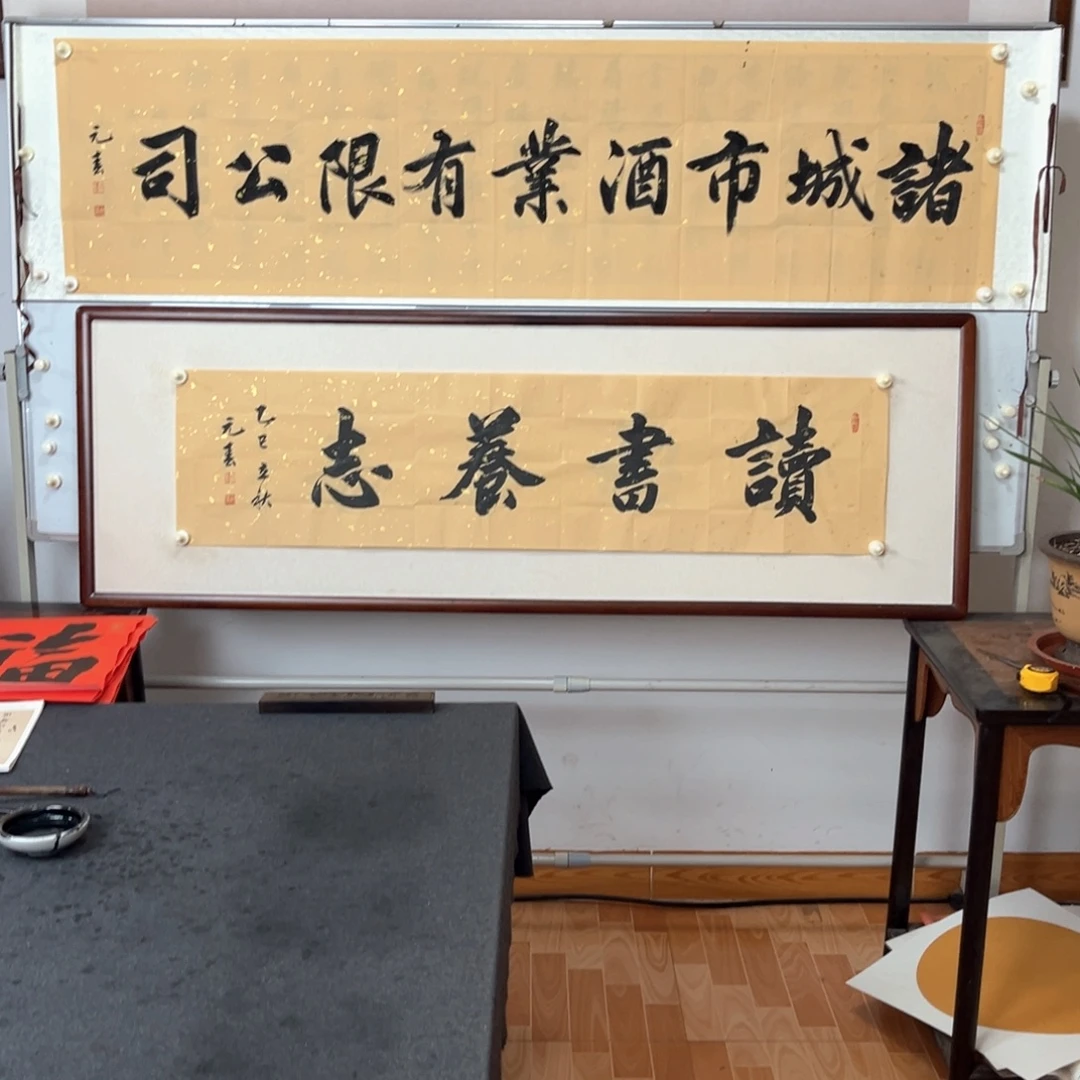 諸城市酒業有限公司
元春
讀書養志
乙巳立秋
元春